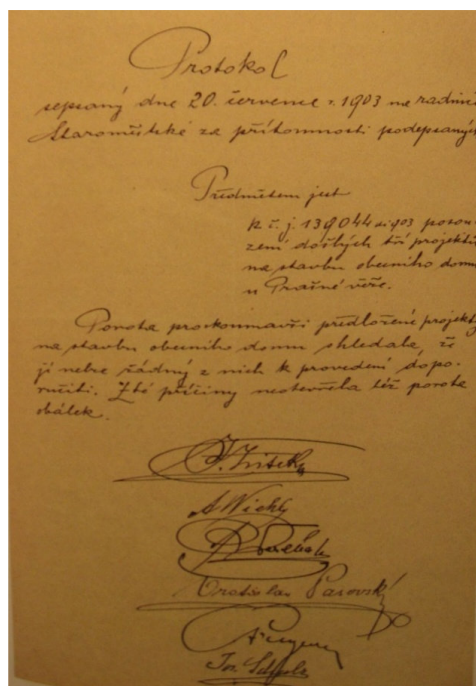 Protokol
sepsaný dne 20. července r. 1903 na radnici
Staroměstské za přítomnosti podepsaných
Předmětem jest
k č. j. 139044 ai 903 posou-
zení došlých tří projektů
na stavbu obecního domu
u Prašné věže.
Porota prozkoumavši předložené projekty
na stavbu obecního domu shledala, že
jí nelze žádný z nich k provedení dopo-
ručiti. Z té příčiny neotevřela též porota
obálek.
A Wiehl
Vratislav Pasovský
Jos.